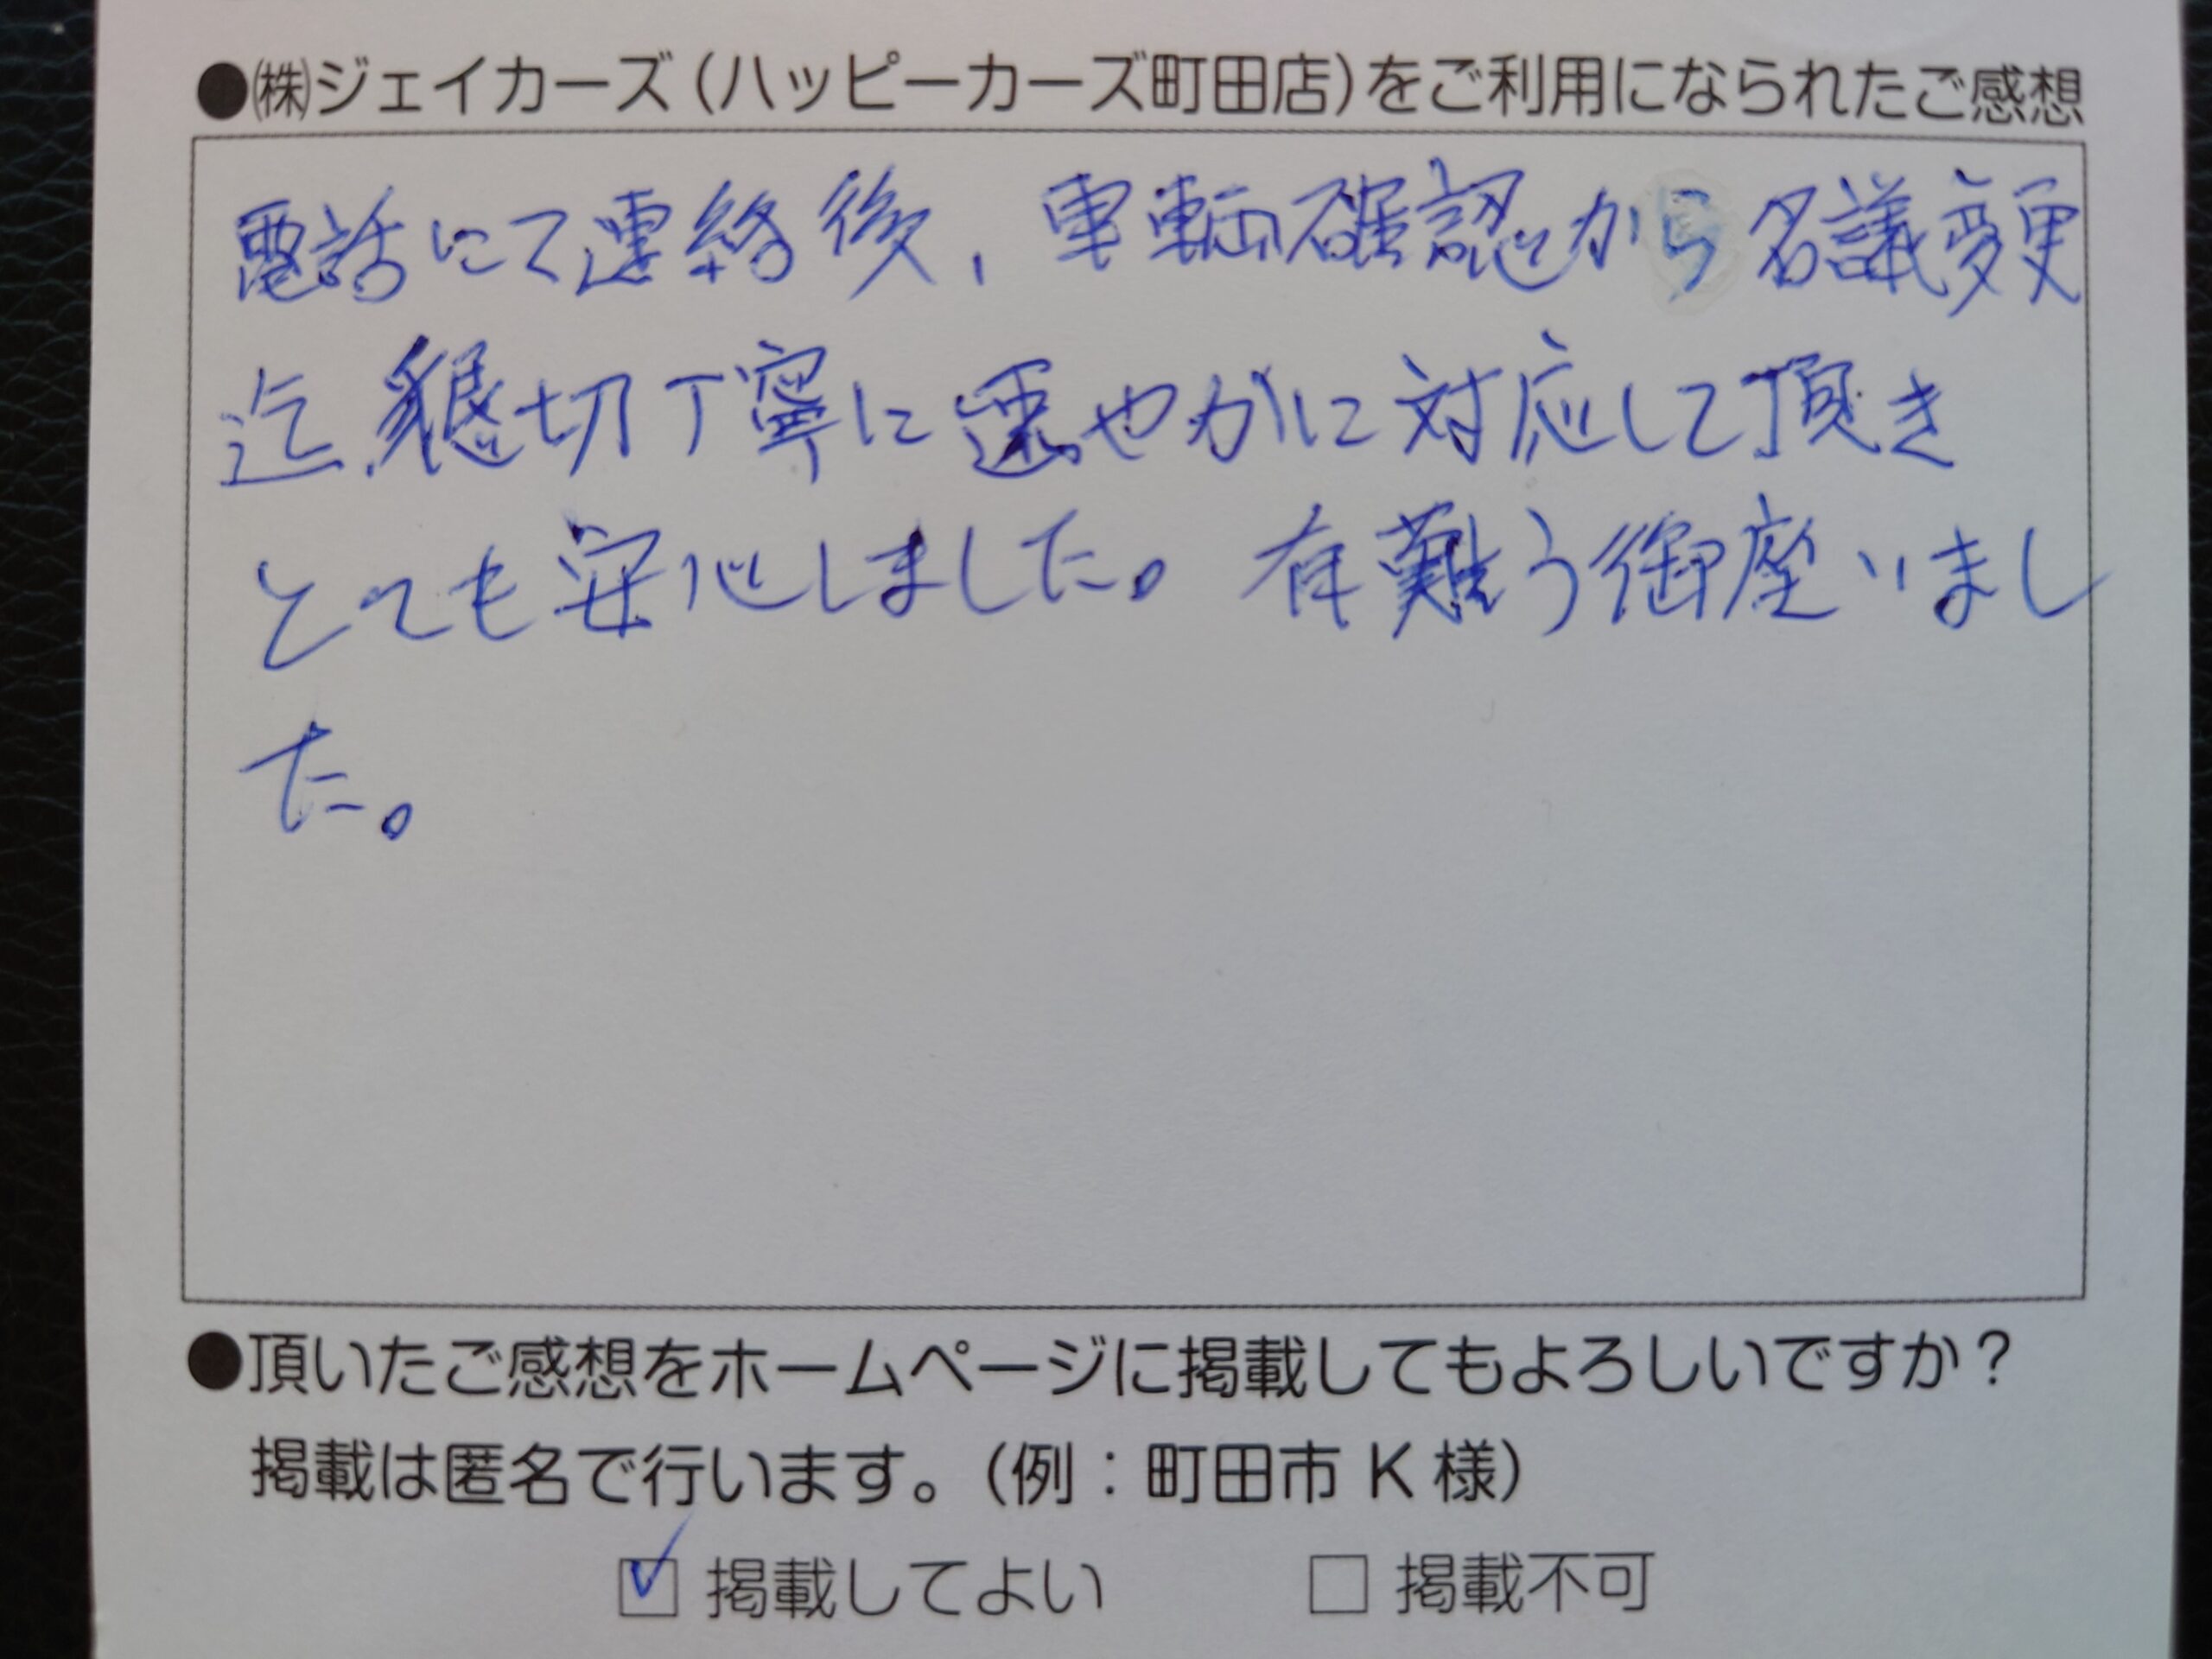 ●㈱ジェイカーズ（ハッピーカーズ町田店）をご利用になられたご感想
電話にて連絡後、車輌確認から名議変更
迄、懇切丁寧に速やかに対応して頂き
とても安心しました。有難う御座いまし
た。
●頂いたご感想をホームページに掲載してもよろしいですか？
掲載は匿名で行います。（例：町田市 K 様）
☑ 掲載してよい □ 掲載不可